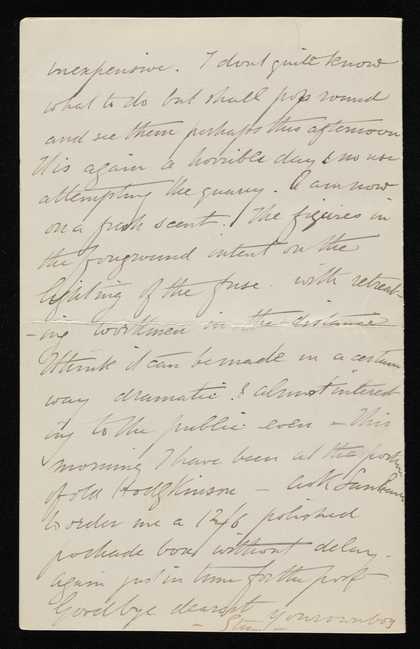 inexpensive. I dont quite know
what to do but shall pop round
and see them perhaps this afternoon
tis again a horrible day & no use
attempting the quarry. I am now
on a fresh scent. The figures in
the foreground intent on the
lighting of the fuse. with retreat-
-ing workmen in the distance
I think it can be made in a certain
way dramatic & almost interest
ing to the public even – This
morning I have been at the
of old Hodgkinson –
to order me a 12/6 polished
pochade box without delay.
again just in time for the post
Goodbye dearest your own boy